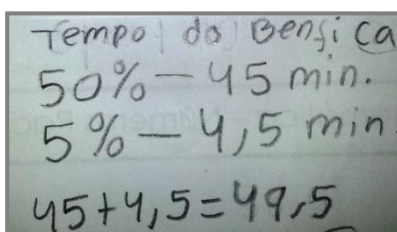 Tempo do Benfica
50% — 45 min.
5% — 4,5 min.
45+4,5=49,5